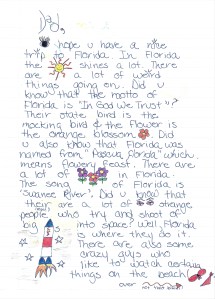 Dad,
I hope u have a nice
trip to Florida. In Florida
the shines a lot. There
are a lot of weird
things going on. Did u
know that the motto of
Florida is "In God We Trust"?
Their state bird is the
mocking bird & the flower
is the orange blossom. Did
u also know that Florida was
named from "Pascua florida" which
means flowery feast. There are
a lot of in Florida.
The song of Florida is
"Swanee River". Did u know that
there are a lot of strange
people who try and shoot of
big into space? Well Florida
is where they do it.
There are also some
crazy guys who
like to watch certain
things on the beach
over